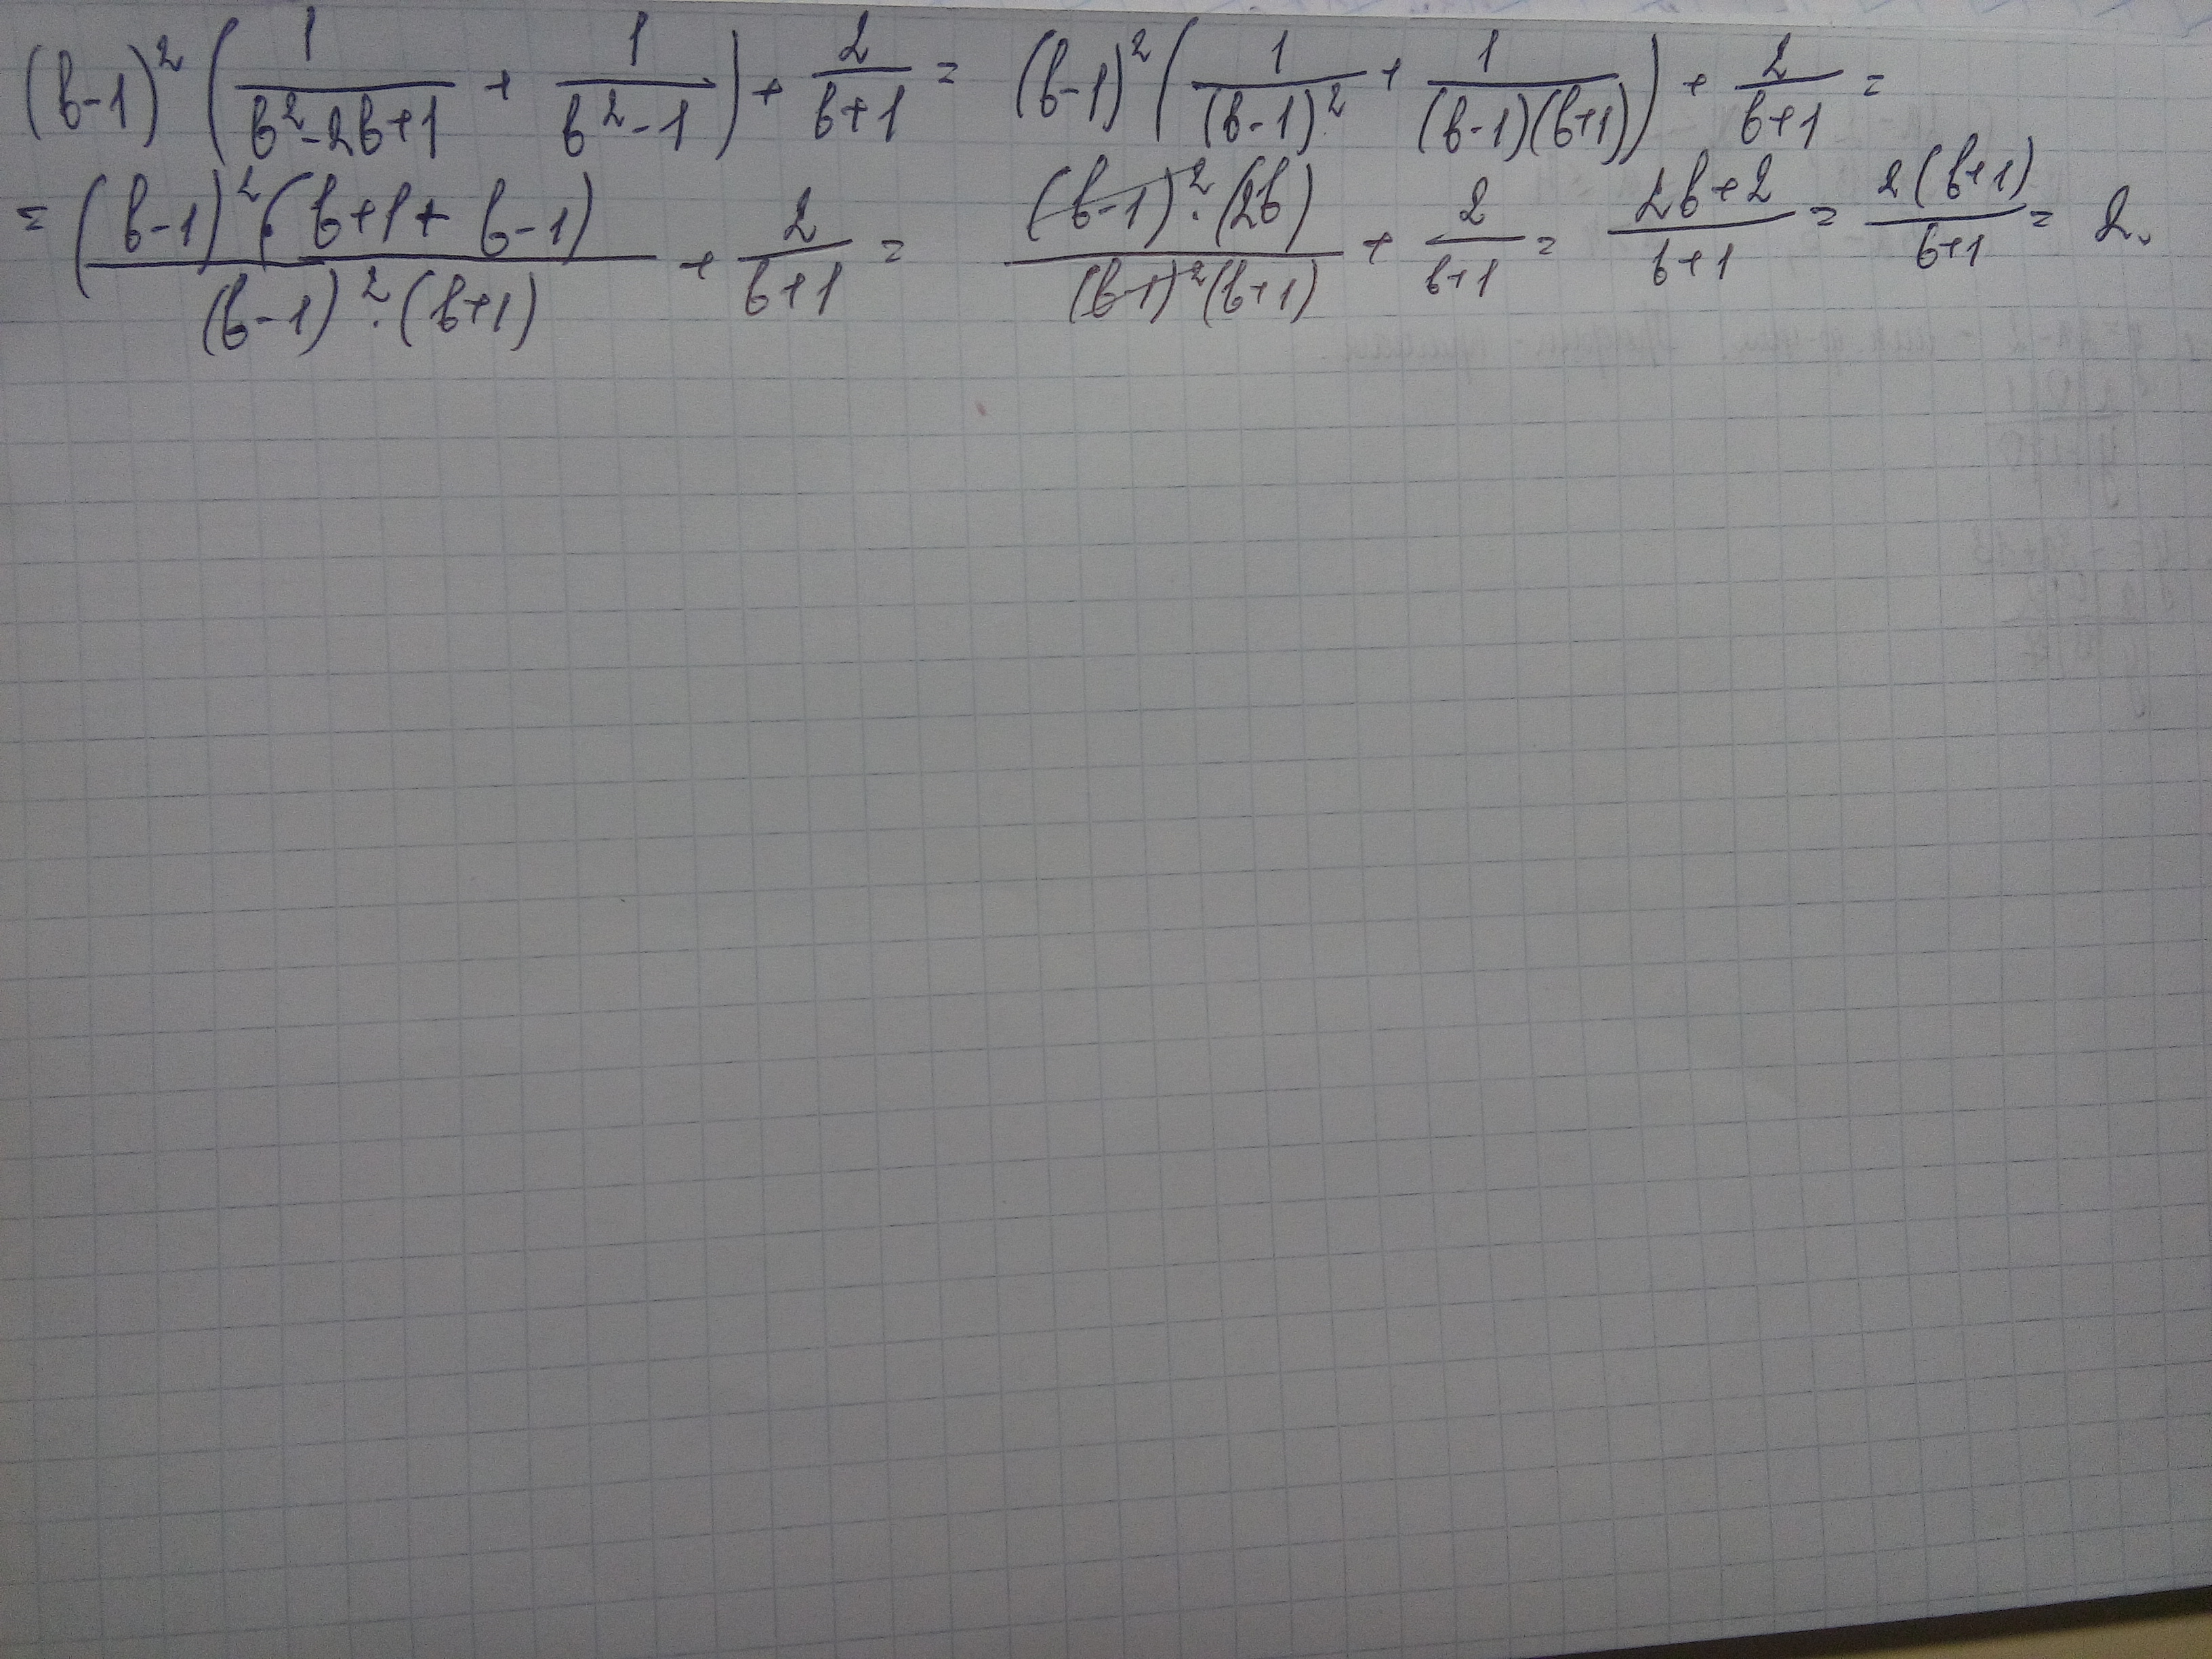 (b-1)² (1/(b²-2b+1) + 1/(b²-1)) + 2/(b+1) = (b-1)² (1/(b-1)² + 1/((b-1)(b+1))) + 2/(b+1) =
= ((b-1)² · (b+1+b-1))/((b-1)² · (b+1)) + 2/(b+1) = ((b-1)² · (2b))/((b-1)² (b+1)) + 2/(b+1) = (2b+2)/(b+1) = 2(b+1)/(b+1) = 2.